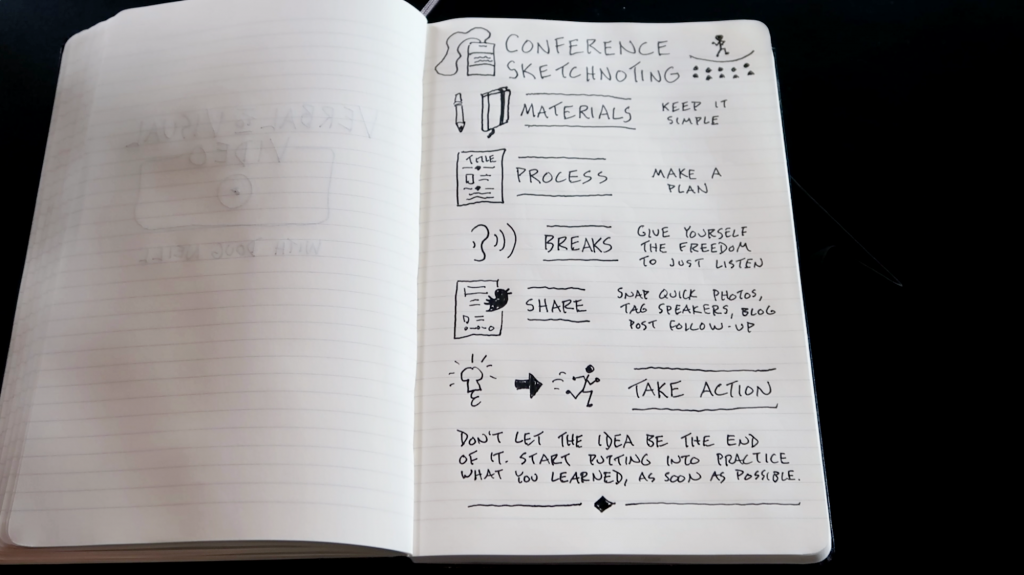 VERBAL TO VISUAL
VIDEO
WITH DOUG NEILL
CONFERENCE
SKETCHNOTING
MATERIALS
KEEP IT
SIMPLE
TITLE
PROCESS
MAKE A
PLAN
BREAKS
GIVE YOURSELF
THE FREEDOM
TO JUST LISTEN
SHARE
SNAP QUICK PHOTOS,
TAG SPEAKERS, BLOG
POST FOLLOW-UP
TAKE ACTION
DON'T LET THE IDEA BE THE END
OF IT. START PUTTING INTO PRACTICE
WHAT YOU LEARNED, AS SOON AS POSSIBLE.